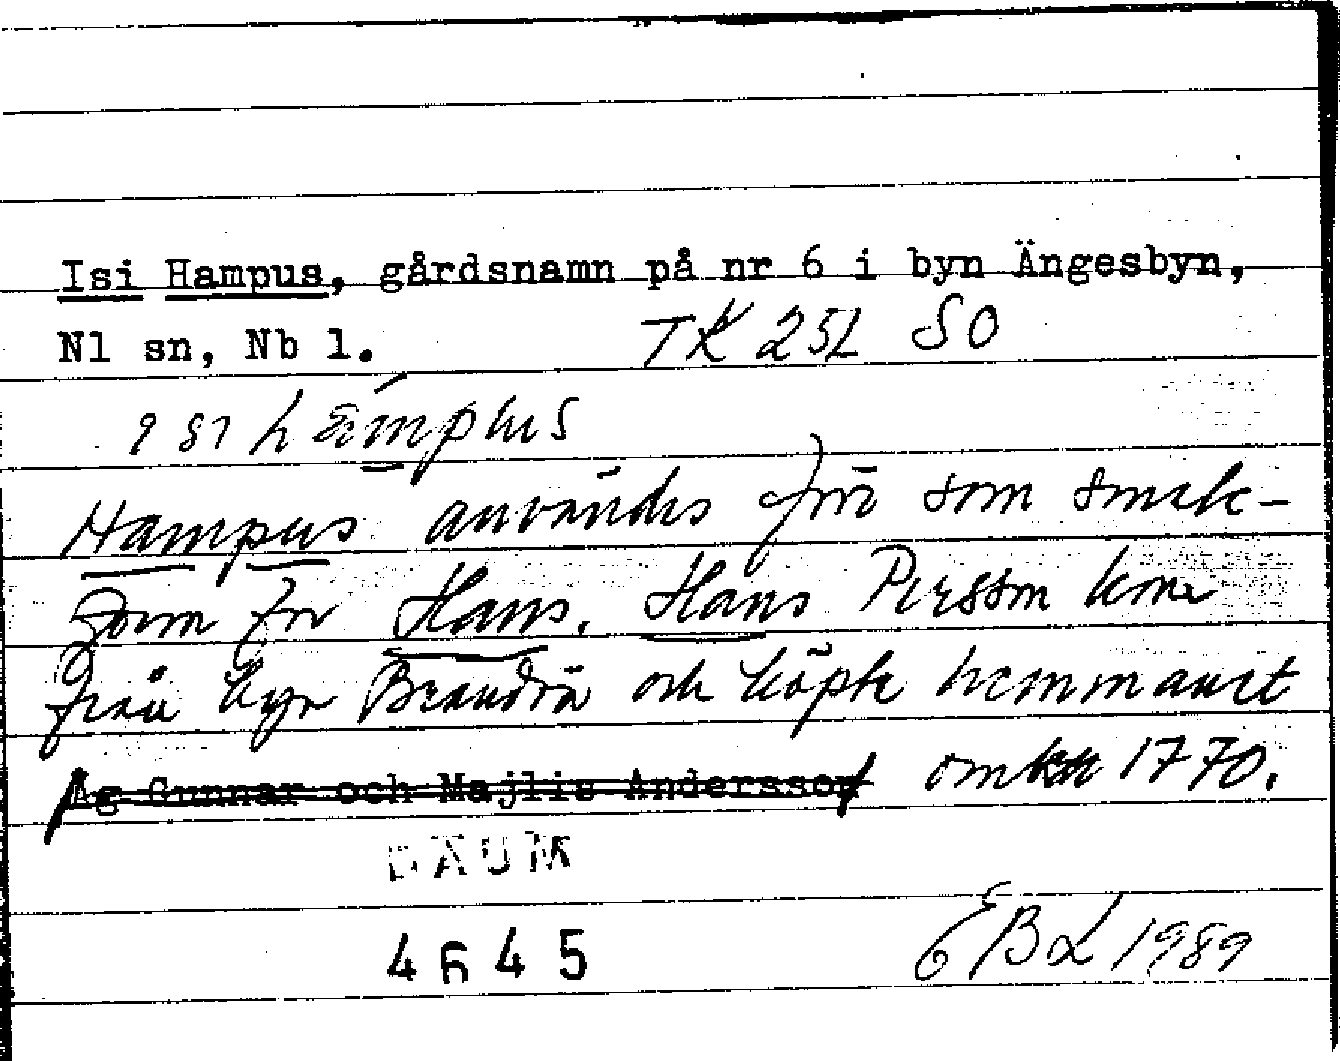 Isi Hampus, gårdsnamn på nr 6 i byn Ängesbyn,
Nl sn, Nb l.
TK 25L SO
Hampus användes förr som smek-
form för Hans. Hans Persson kom
från byn Brändön och köpte hemmanet
Ag Gunnar och Majlis Andersson omkr 1770.
DAUM
4645
EBL 1989